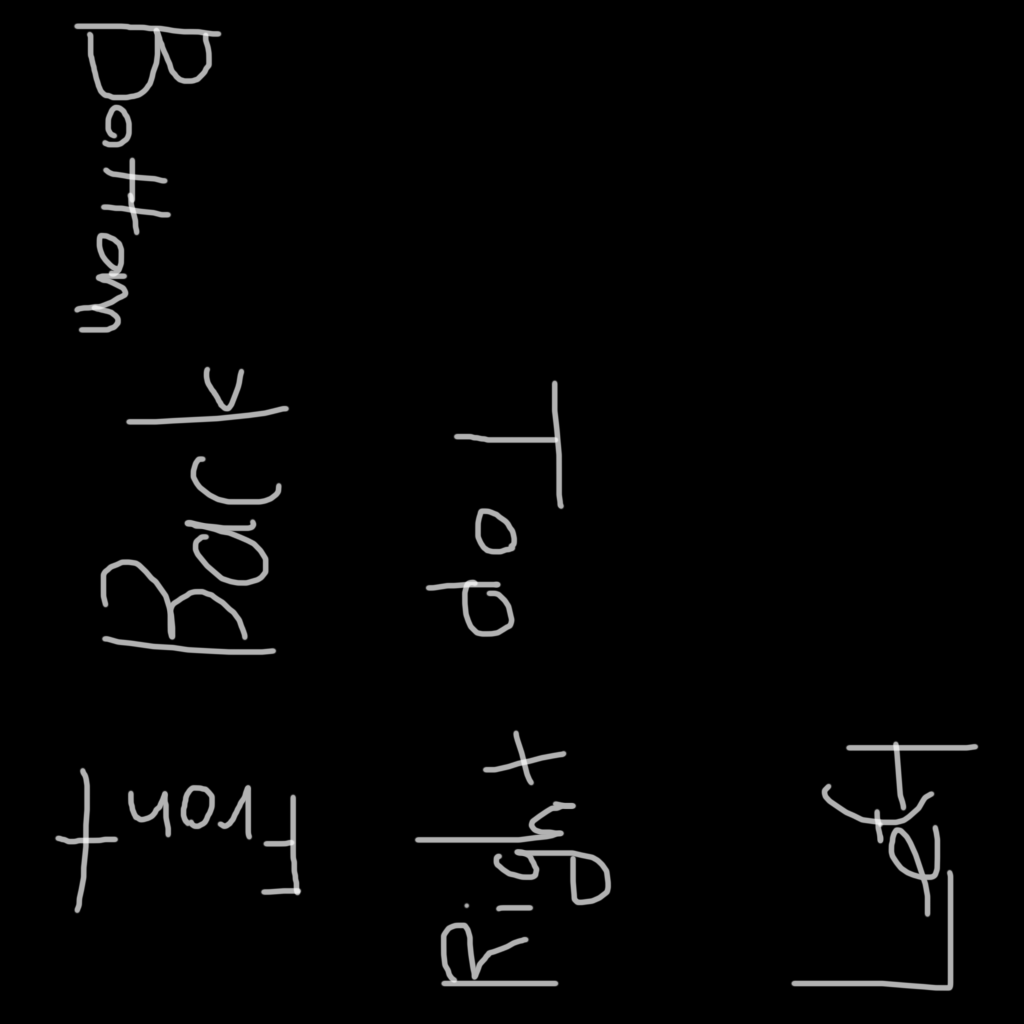 Bottom
Back
Top
Front
Right
Left